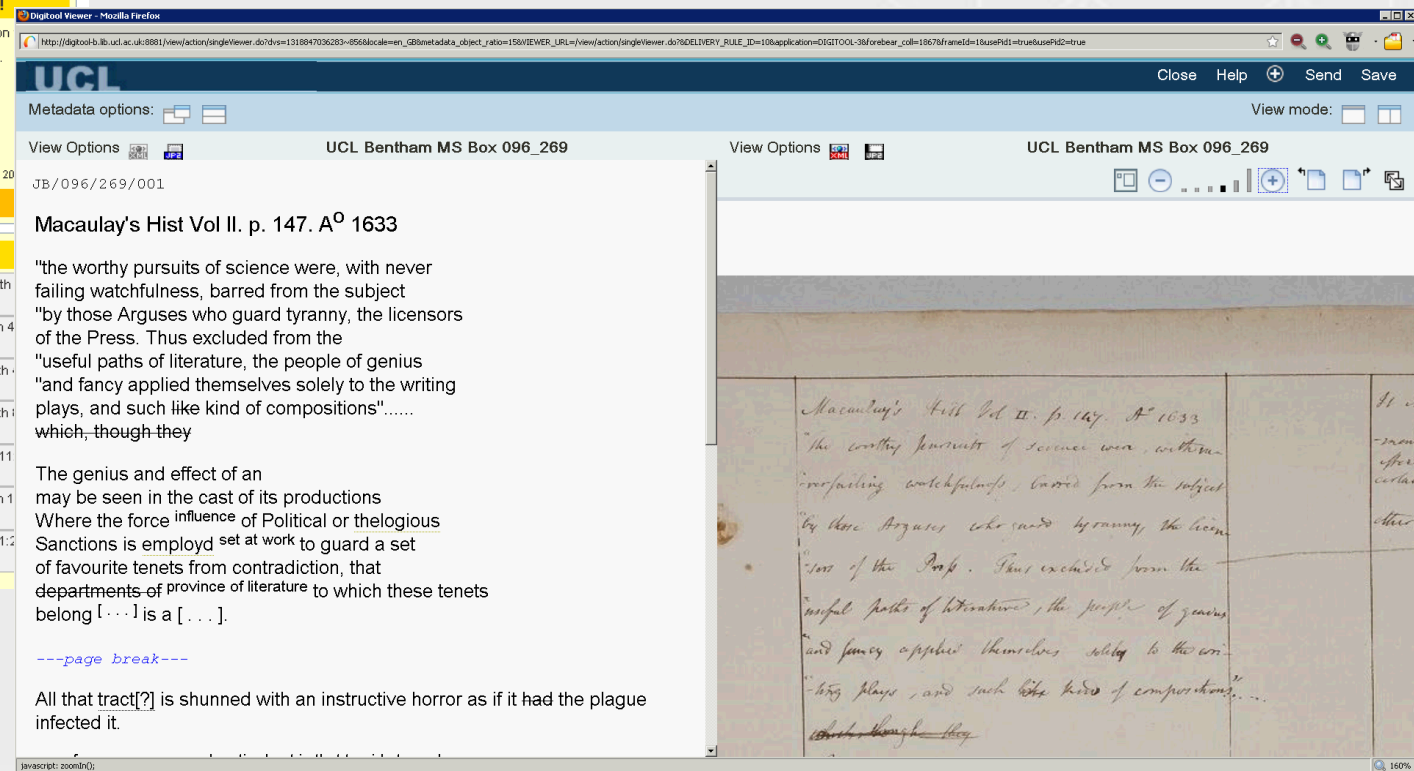 Digitool Viewer - Mozilla Firefox
http://digitool-b.lib.ucl.ac.uk:8881/view/action/singleViewer.do?dvs=1318847036283~856&locale=en_GB&metadata_object_ratio=15&VIEWER_URL=/view/action/singleViewer.do?&DELIVERY_RULE_ID=10&application=DIGITOOL-3&forebear_coll=1867&frameId=1&usePid1=true&usePid2=true
UCL
Close Help Send Save
Metadata options:
View mode:
View Options XML JP2 UCL Bentham MS Box 096_269
View Options XML JP2 UCL Bentham MS Box 096_269
JB/096/269/001
Macaulay's Hist Vol II. p. 147. Aº 1633
"the worthy pursuits of science were, with never
failing watchfulness, barred from the subject
"by those Arguses who guard tyranny, the licensors
of the Press. Thus excluded from the
"useful paths of literature, the people of genius
"and fancy applied themselves solely to the writing
plays, and such like kind of compositions"......
which, though they
The genius and effect of an
may be seen in the cast of its productions
Where the force influence of Political or thelogious
Sanctions is employd set at work to guard a set
of favourite tenets from contradiction, that
departments of province of literature to which these tenets
belong [ . . . ] is a [ . . . ].
---page break---
All that tract[?] is shunned with an instructive horror as if it had the plague
infected it.
Macaulay's Hist Vol II. p. 147. Aº 1633
"the worthy pursuits of science were, with ne-
"verfailing watchfulness, barred from the subject
"by those Arguses who guard tyranny, the licen-
"sors of the Press. Thus excluded from the
"useful paths of literature, the people of genius
"and fancy applied themselves solely to the wri-
"ting plays, and such like kind of compositions"....
which though they
javascript: zoomIn();
160%